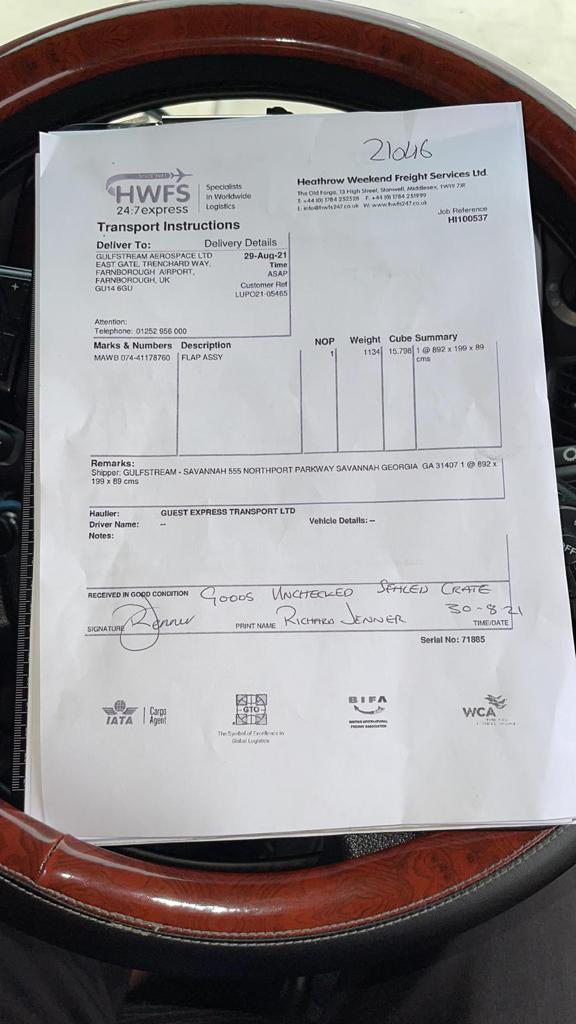 21046
HWFS
24:7express
Specialists
in Worldwide
Logistics
Heathrow Weekend Freight Services Ltd
The Old Forge, 13 High Street, Stanwell, Middlesex, TW19 7JR
T: +44 (0) 1784 252528 F: +44 (0) 1784 251999
E: info@hwfs247.co.uk W: www.hwfs247.co.uk
Job Reference
HI100537
Transport Instructions
Deliver To: Delivery Details
GULFSTREAM AEROSPACE LTD 29-Aug-21
EAST GATE, TRENCHARD WAY, Time
FARNBOROUGH AIRPORT, ASAP
FARNBOROUGH, UK Customer Ref
GU14 6GU LUPO21-05465
Attention:
Telephone: 01252 956 000
Marks & Numbers Description NOP Weight Cube Summary
MAWB 074-41178760 FLAP ASSY 1 1134 15.798 1 @ 892 x 199 x 89
cms
Remarks:
Shipper: GULFSTREAM - SAVANNAH 555 NORTHPORT PARKWAY SAVANNAH GEORGIA GA 31407 1 @ 892 x
199 x 89 cms
Haulier: GUEST EXPRESS TRANSPORT LTD
Driver Name: -- Vehicle Details: --
Notes:
RECEIVED IN GOOD CONDITION GOODS UNCHECKED SEALED CRATE
SIGNATURE Jenner PRINT NAME RICHARD JENNER 30-8-21
TIME/DATE
Serial No: 71885
IATA
Cargo
Agent
GTO
The Symbol of Excellence in
Global Logistics
BIFA
BRITISH INTERNATIONAL
FREIGHT ASSOCIATION
WCA